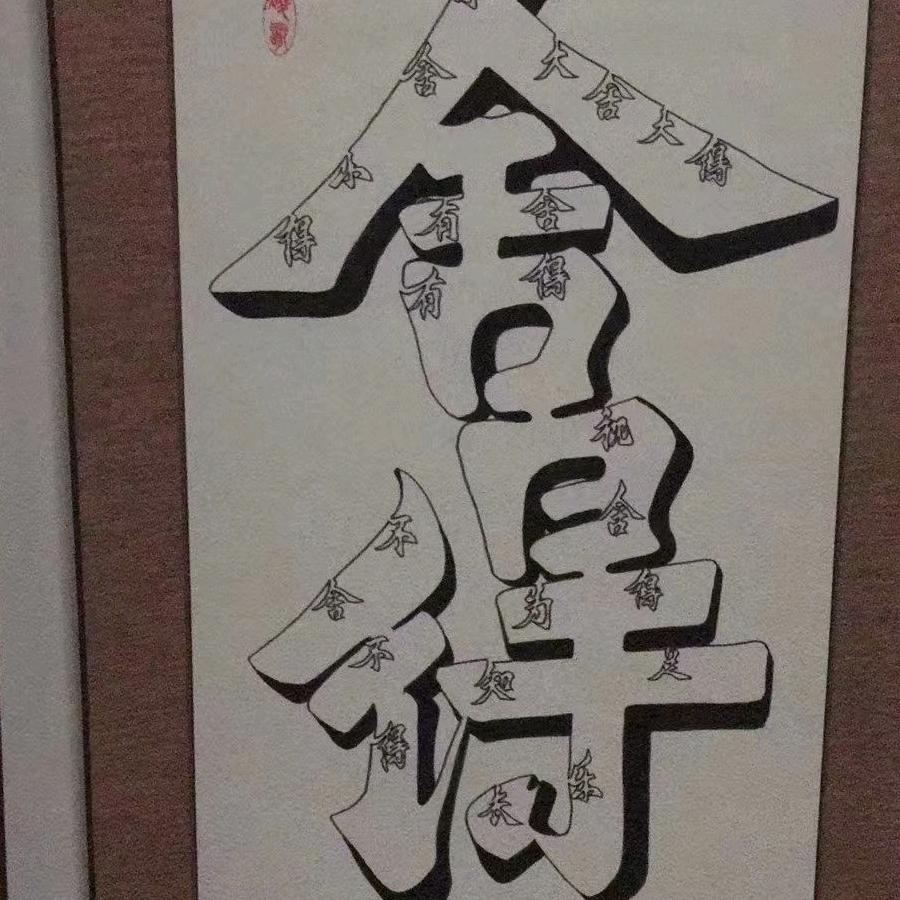 舍得
舍小得
大舍大得
有舍
有得
不舍不得
舍
为得
知足
乐